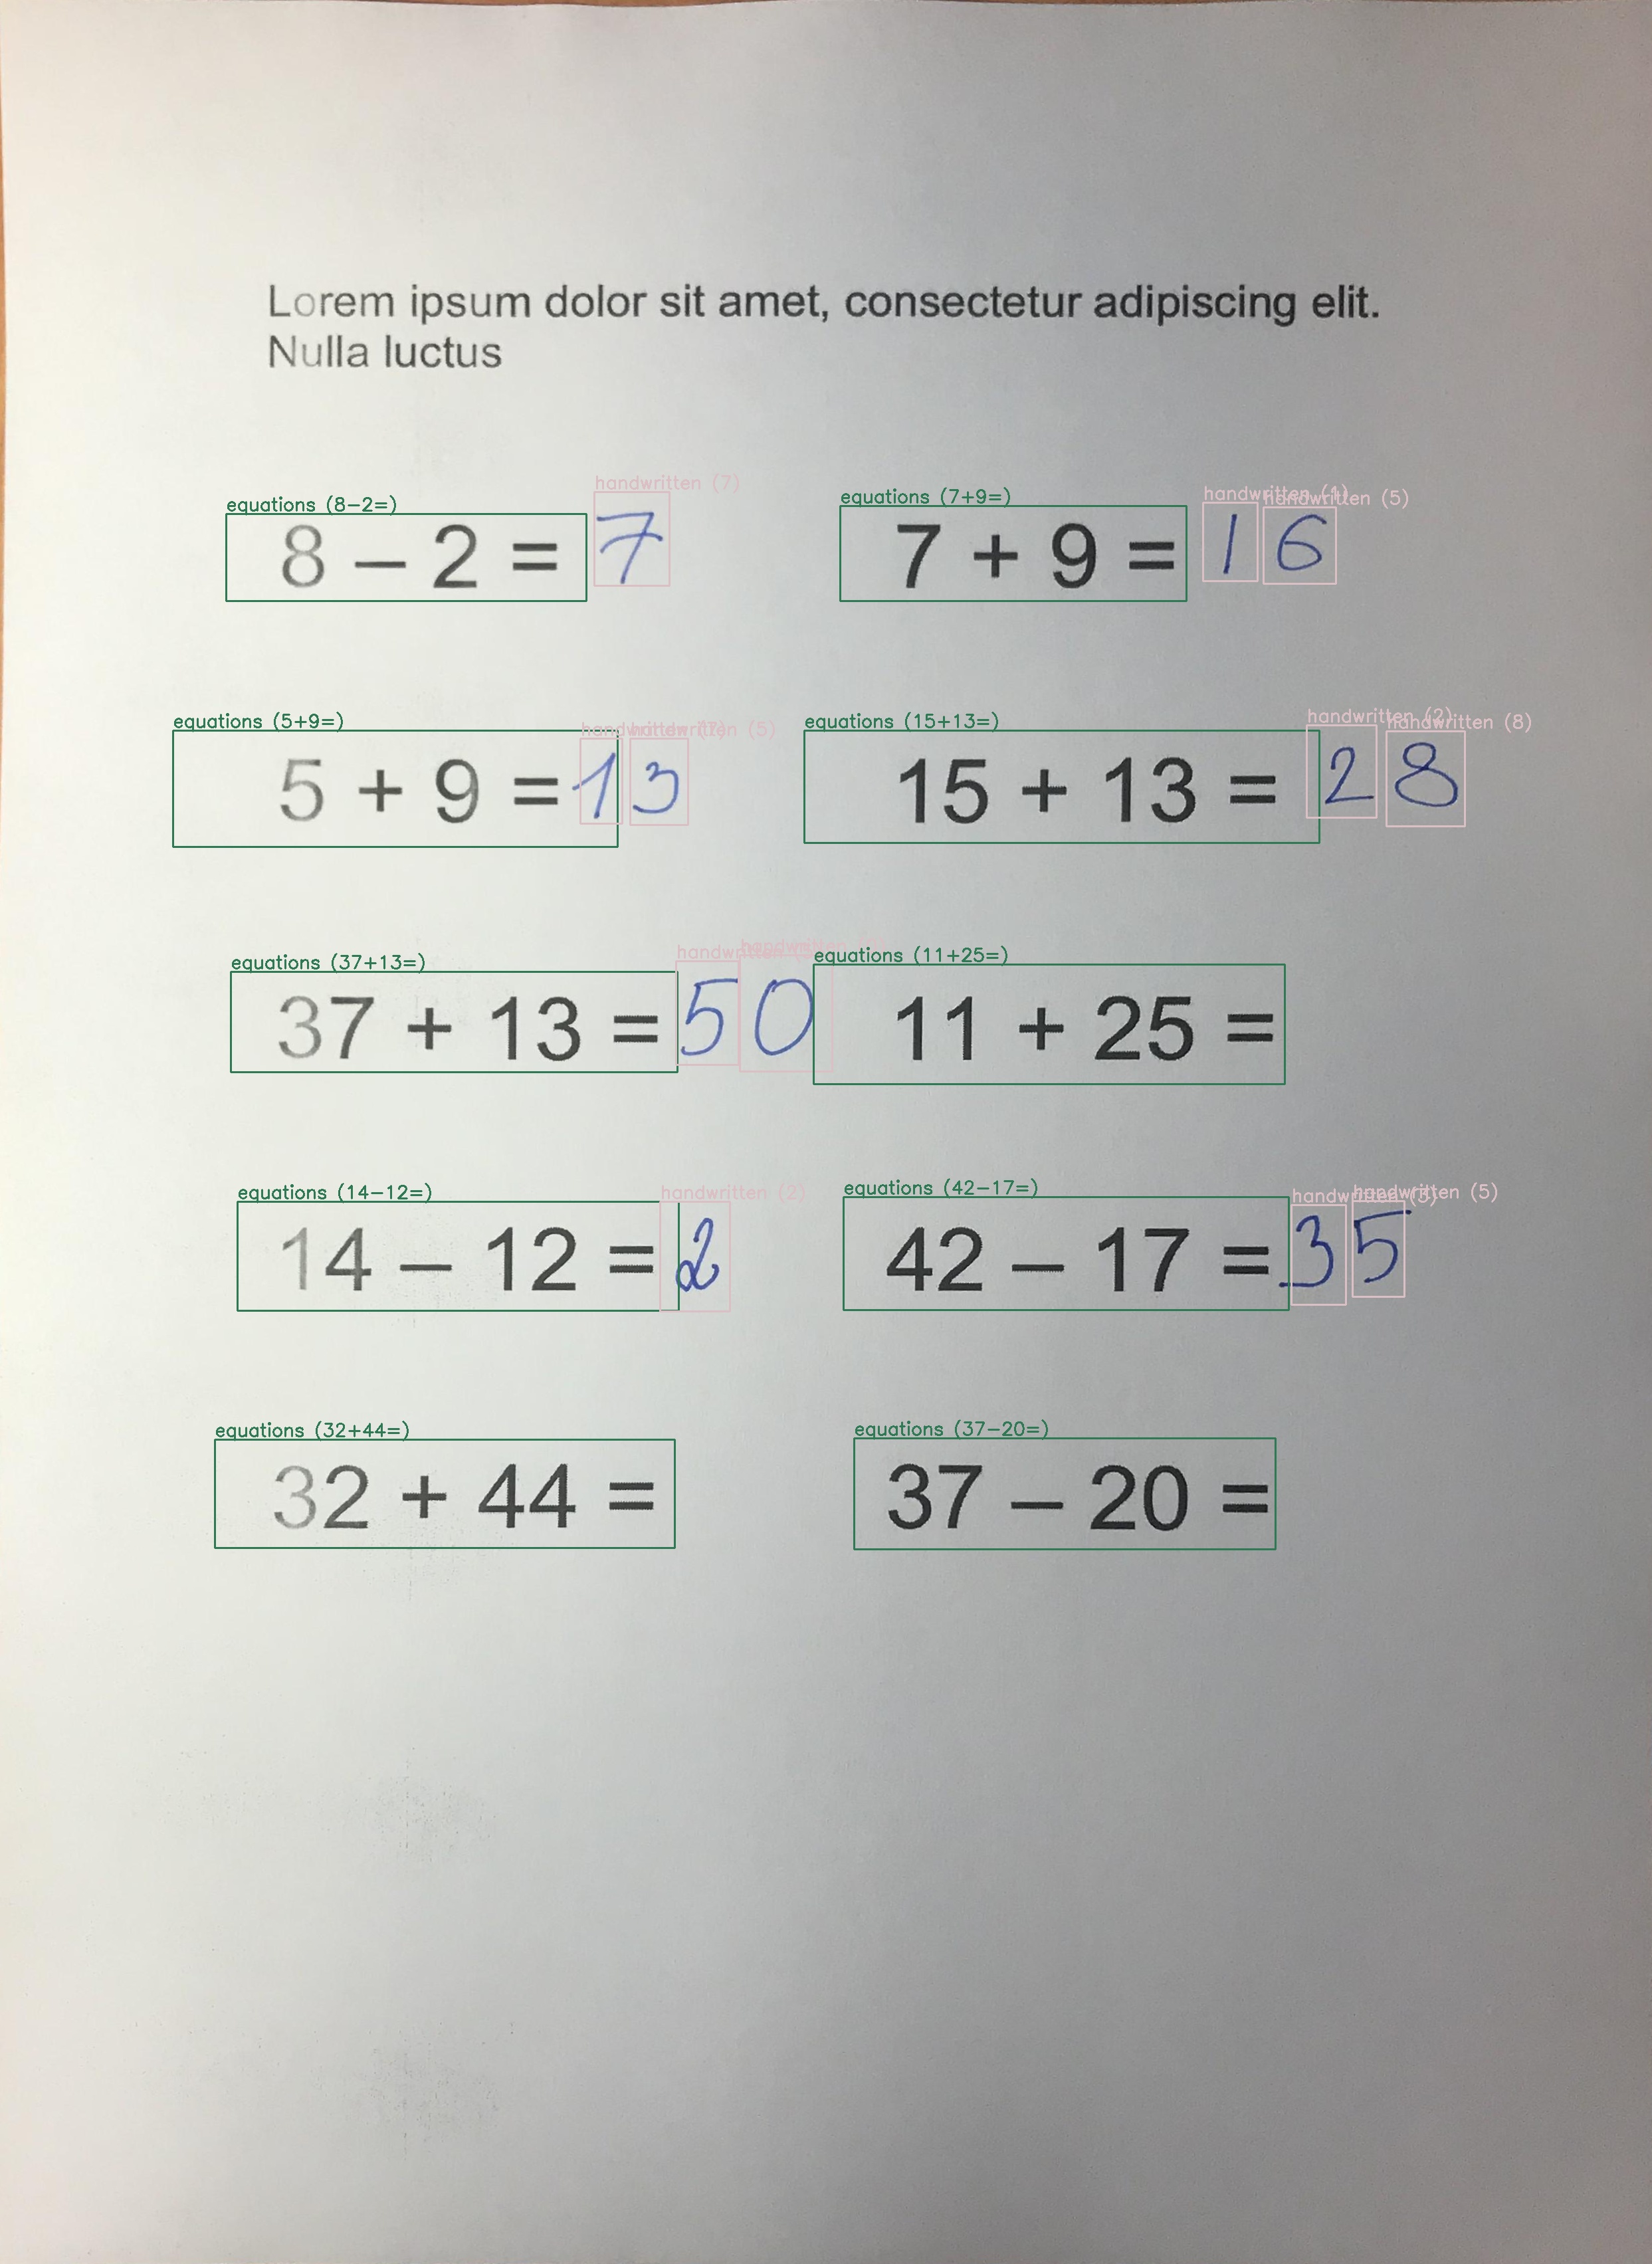 Lorem ipsum dolor sit amet, consectetur adipiscing elit.
Nulla luctus
equations (8-2=) handwritten (7) equations (7+9=) handwritten (1) handwritten (5)
8 – 2 = 7 7 + 9 = 16
equations (5+9=) handwritten (5) equations (15+13=) handwritten (2) handwritten (8)
5 + 9 = 13 15 + 13 = 28
equations (37+13=) handwritten equations (11+25=)
37 + 13 = 50 11 + 25 =
equations (14-12=) handwritten (2) equations (42-17=) handwritten (3) handwritten (5)
14 – 12 = 2 42 – 17 = 35
equations (32+44=) equations (37-20=)
32 + 44 = 37 – 20 =